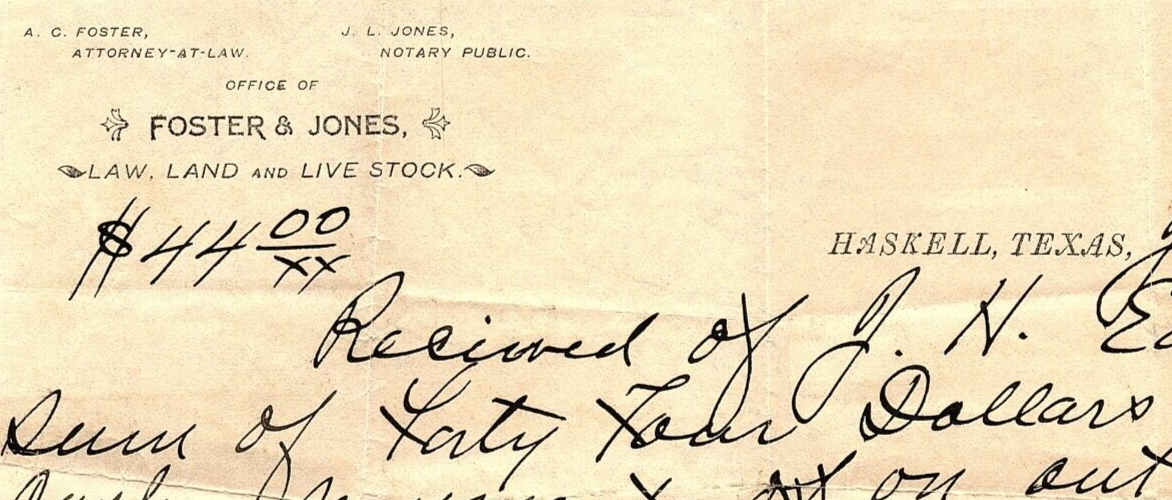 A. C. FOSTER, J. L. JONES,
ATTORNEY-AT-LAW. NOTARY PUBLIC.
OFFICE OF
FOSTER & JONES,
LAW, LAND AND LIVE STOCK.
$44 00/xx
HASKELL, TEXAS,
Recieved of J. H.
Sum of Forty Four Dollars
on out